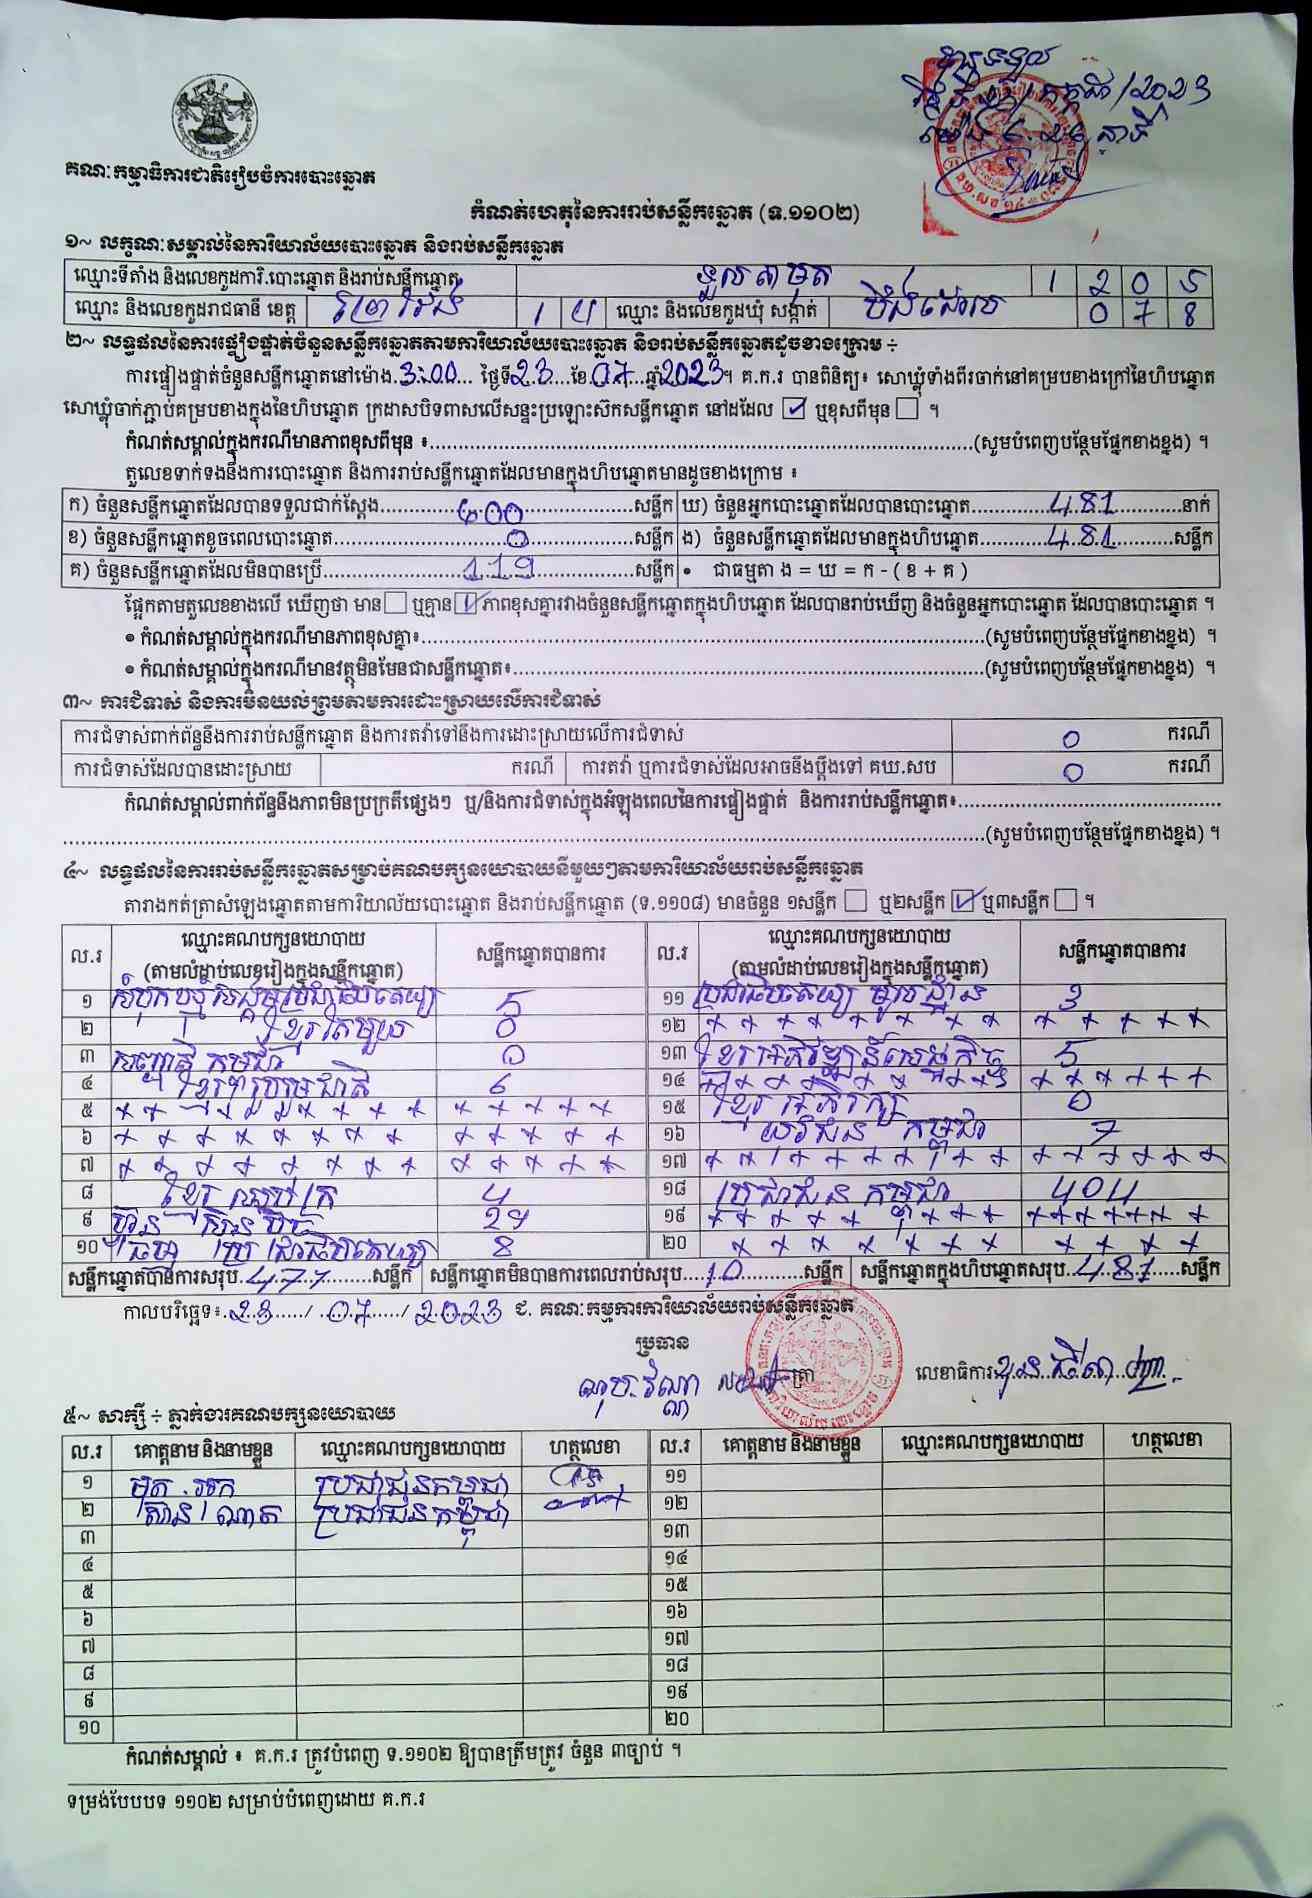 គណៈកម្មាធិការជាតិរៀបចំការបោះឆ្នោត
កំណត់ហេតុនៃការរាប់សន្លឹកឆ្នោត (ទ.១១០២)
១~ លក្ខណៈសម្គាល់នៃការិយាល័យបោះឆ្នោត និងរាប់សន្លឹកឆ្នោត
ឈ្មោះទីតាំង និងលេខកូដការិ.បោះឆ្នោត និងរាប់សន្លឹកឆ្នោត 1 2 0 5
ឈ្មោះ និងលេខកូដរាជធានី ខេត្ត ព្រៃវែង 1 4 ឈ្មោះ និងលេខកូដឃុំ សង្កាត់ 0 7 8
២~ លទ្ធផលនៃការផ្ទៀងផ្ទាត់ចំនួនសន្លឹកឆ្នោតតាមការិយាល័យបោះឆ្នោត និងរាប់សន្លឹកឆ្នោតដូចខាងក្រោម ÷
ការផ្ទៀងផ្ទាត់ចំនួនសន្លឹកឆ្នោតនៅម៉ោង.3:00... ថ្ងៃទី23...ខែ.07...ឆ្នាំ2023។ គ.ក.រ បានពិនិត្យ៖ សោឃ្លុំទាំងពីរចាក់នៅគម្របខាងក្រៅនៃហិបឆ្នោត
សោឃ្លុំចាក់ភ្ជាប់គម្របខាងក្នុងនៃហិបឆ្នោត ក្រដាសបិទពាសលើសន្ទះប្រឡោះស៊កសន្លឹកឆ្នោត នៅដដែល ☑ ឬខុសពីមុន ☐ ។
កំណត់សម្គាល់ក្នុងករណីមានភាពខុសពីមុន ៖......(សូមបំពេញបន្ថែមផ្នែកខាងខ្នង) ។
តួលេខទាក់ទងនឹងការបោះឆ្នោត និងការរាប់សន្លឹកឆ្នោតដែលមានក្នុងហិបឆ្នោតមានដូចខាងក្រោម ៖
ក) ចំនួនសន្លឹកឆ្នោតដែលបានទទួលជាក់ស្តែង......600......សន្លឹក ឃ) ចំនួនអ្នកបោះឆ្នោតដែលបានបោះឆ្នោត......481......នាក់
ខ) ចំនួនសន្លឹកឆ្នោតខូចពេលបោះឆ្នោត......0......សន្លឹក ង) ចំនួនសន្លឹកឆ្នោតដែលមានក្នុងហិបឆ្នោត......481......សន្លឹក
គ) ចំនួនសន្លឹកឆ្នោតដែលមិនបានប្រើ......119......សន្លឹក • ជាធម្មតា ង = ឃ = ក - ( ខ + គ )
ផ្អែកតាមតួលេខខាងលើ ឃើញថា មាន ☐ ឬគ្មាន ☑ ភាពខុសគ្នារវាងចំនួនសន្លឹកឆ្នោតក្នុងហិបឆ្នោត ដែលបានរាប់ឃើញ និងចំនួនអ្នកបោះឆ្នោត ដែលបានបោះឆ្នោត ។
• កំណត់សម្គាល់ក្នុងករណីមានភាពខុសគ្នា៖......(សូមបំពេញបន្ថែមផ្នែកខាងខ្នង) ។
• កំណត់សម្គាល់ក្នុងករណីមានវត្ថុមិនមែនជាសន្លឹកឆ្នោត៖......(សូមបំពេញបន្ថែមផ្នែកខាងខ្នង) ។
៣~ ការជំទាស់ និងការមិនយល់ព្រមតាមការដោះស្រាយលើការជំទាស់
ការជំទាស់ពាក់ព័ន្ធនឹងការរាប់សន្លឹកឆ្នោត និងការតវ៉ាទៅនឹងការដោះស្រាយលើការជំទាស់ 0 ករណី
ការជំទាស់ដែលបានដោះស្រាយ ករណី ការតវ៉ា ឬការជំទាស់ដែលអាចនឹងប្តឹងទៅ គឃ.សប 0 ករណី
កំណត់សម្គាល់ពាក់ព័ន្ធនឹងភាពមិនប្រក្រតីផ្សេងៗ ឬ/និងការជំទាស់ក្នុងអំឡុងពេលនៃការផ្ទៀងផ្ទាត់ និងការរាប់សន្លឹកឆ្នោត៖......
......(សូមបំពេញបន្ថែមផ្នែកខាងខ្នង) ។
៤~ លទ្ធផលនៃការរាប់សន្លឹកឆ្នោតសម្រាប់គណបក្សនយោបាយនីមួយៗតាមការិយាល័យរាប់សន្លឹកឆ្នោត
តារាងកត់ត្រាសំឡេងឆ្នោតតាមការិយាល័យបោះឆ្នោត និងរាប់សន្លឹកឆ្នោត (ទ.១១០៨) មានចំនួន ១សន្លឹក ☐ ឬ២សន្លឹក ☑ ឬ៣សន្លឹក ☐ ។
ល.រ ឈ្មោះគណបក្សនយោបាយ (តាមលំដាប់លេខរៀងក្នុងសន្លឹកឆ្នោត) សន្លឹកឆ្នោតបានការ ល.រ ឈ្មោះគណបក្សនយោបាយ (តាមលំដាប់លេខរៀងក្នុងសន្លឹកឆ្នោត) សន្លឹកឆ្នោតបានការ
១ សំបុកឃ្មុំសង្គមប្រជាធិបតេយ្យ 5 ១១ 3
២ ខ្មែរតែមួយ 0 ១២ × × × × × × × × × × × × ×
៣ សញ្ជាតិកម្ពុជា 0 ១៣ ខ្មែរអភិវឌ្ឍន៍សេដ្ឋកិច្ច 5
៤ 6 ១៤ × × × × × × × × × × × × ×
៥ × × × × × × × × × × × × × ១៥ 0
៦ × × × × × × × × × × × × × ១៦ យុវជន កម្ពុជា 7
៧ × × × × × × × × × × × × × ១៧ × × × × × × × × × × × × ×
៨ ខ្មែរ ឈប់ក្រ 4 ១៨ ប្រជាជន កម្ពុជា 404
៩ ហ៊្វុនស៊ិនប៉ិច 29 ១៩ × × × × × × × × × × × × ×
១០ ធម្មាធិបតេយ្យ 8 ២០ × × × × × × × × × × ×
សន្លឹកឆ្នោតបានការសរុប.471......សន្លឹក សន្លឹកឆ្នោតមិនបានការពេលរាប់សរុប....10......សន្លឹក សន្លឹកឆ្នោតក្នុងហិបឆ្នោតសរុប.481....សន្លឹក
កាលបរិច្ឆេទ៖.23....../ .07....../ 2023 ជ. គណៈកម្មការការិយាល័យរាប់សន្លឹកឆ្នោត
ប្រធាន
ត្រា លេខាធិការ
៥~ សាក្សី ÷ ភ្នាក់ងារគណបក្សនយោបាយ
ល.រ គោត្តនាម និងនាមខ្លួន ឈ្មោះគណបក្សនយោបាយ ហត្ថលេខា ល.រ គោត្តនាម និងនាមខ្លួន ឈ្មោះគណបក្សនយោបាយ ហត្ថលេខា
១ ប្រជាជនកម្ពុជា ១១
២ ប្រជាជនកម្ពុជា ១២
៣ ១៣
៤ ១៤
៥ ១៥
៦ ១៦
៧ ១៧
៨ ១៨
៩ ១៩
១០ ២០
កំណត់សម្គាល់ ៖ គ.ក.រ ត្រូវបំពេញ ទ.១១០២ ឱ្យបានត្រឹមត្រូវ ចំនួន ៣ច្បាប់ ។
ទម្រង់បែបបទ ១១០២ សម្រាប់បំពេញដោយ គ.ក.រ